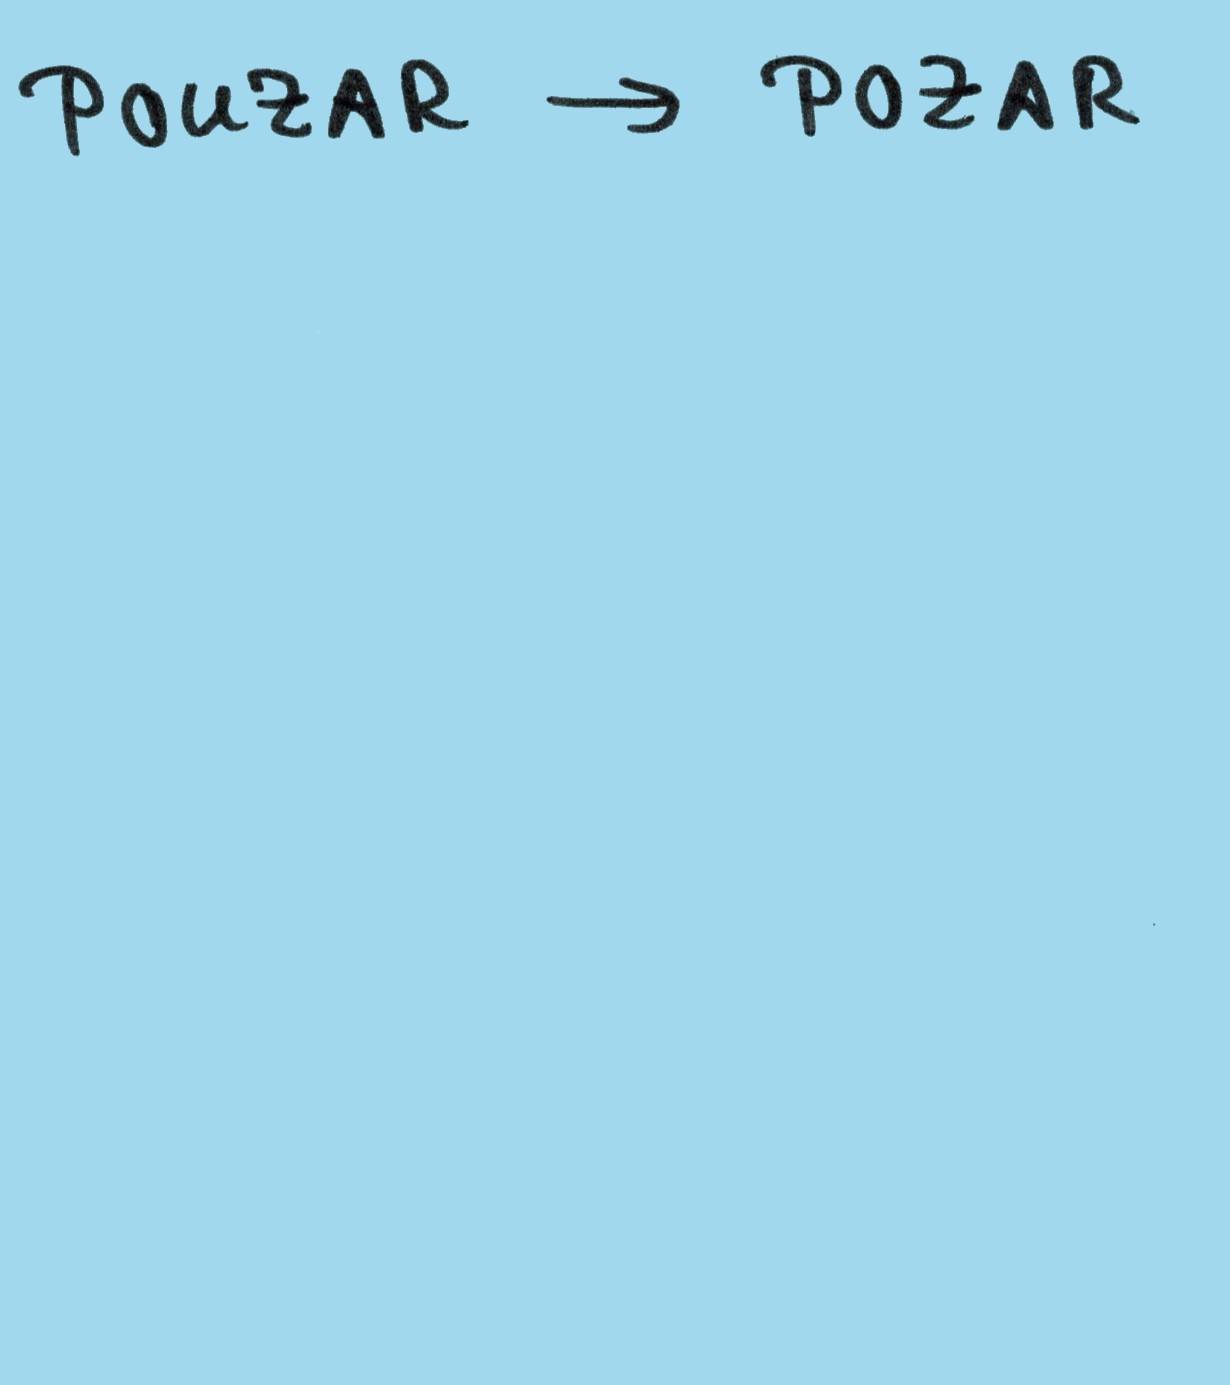 POUZAR → POZAR